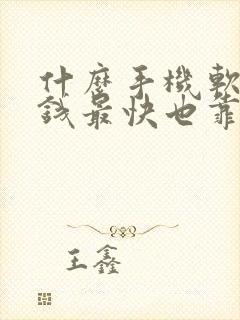 什麼手機軟
錢最快也靠
王鑫